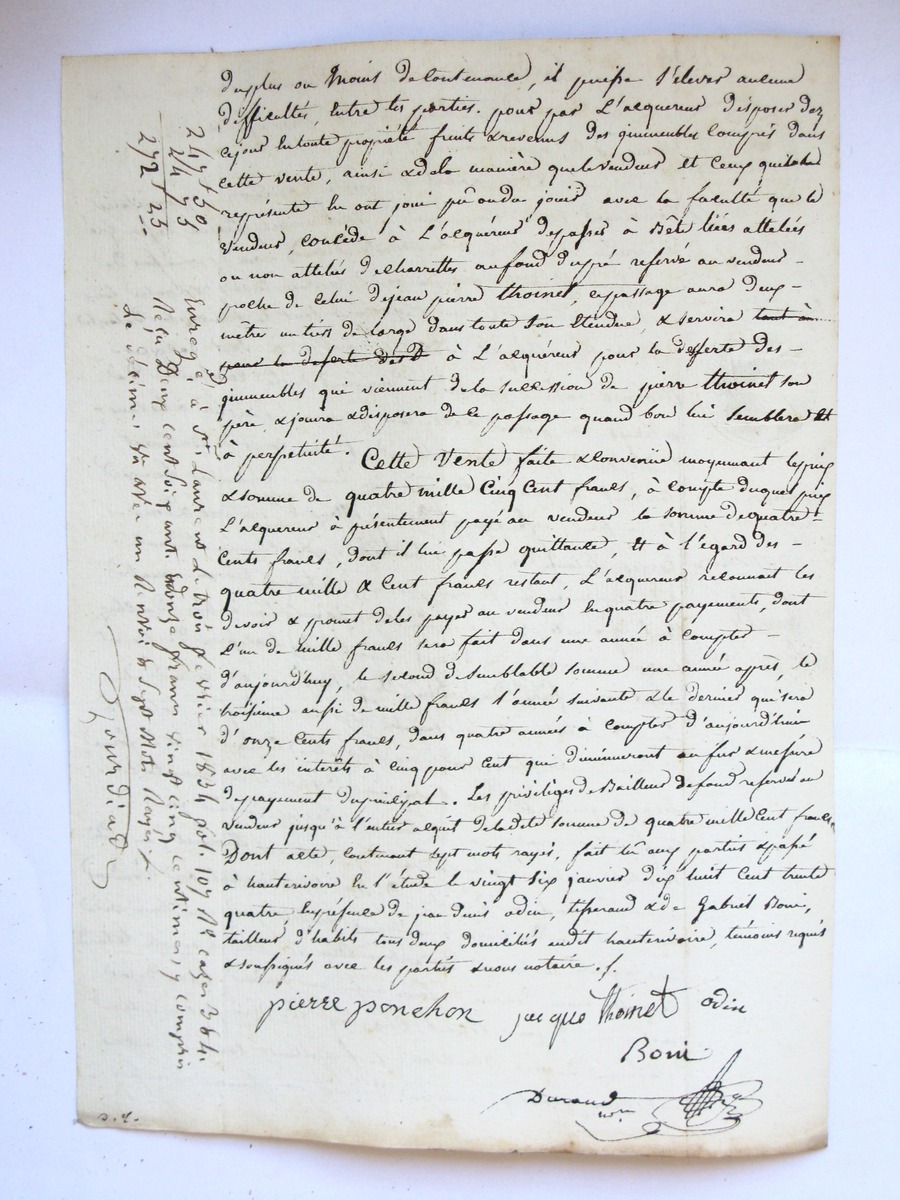 du plus ou moins de contenance, il puisse s'élever aucune
difficultés, entre les parties. pour par L'acquereur disposer dez
cejour en toute propriété fruits & revenus des immeubles compris dans
cette vente, ainsi & de la manière que le vendeur et ceux qu'il
représente en ont joui pû ou du jouir avec la faculté que le
vendeur, concède à L'acquéreur de passer à Bête liées attelées
ou non attelées de charrettes au fond du pré reservé au vendeur
proche de celui de jean pierre thoinet, ce passage aura deux
mètres un tiers de large dans toute son étendue, & servira tant à
pour la deserte des à L'acquéreur pour la desserte des
immeubles qui viennent de la succession de pierre thoinet son
père, & jouira & disposera de ce passage quand bon lui semblera et
à perpétuité. Cette Vente faite & convenüe moyennant le prix
& somme de quatre mille cinq cent francs, à compte duquel prix
L'acquereur à présentement payé au vendeur la somme de quatre
cents francs, dont il lui passe quittance, et à l'égard des
quatre mille & cent francs restant, L'acquereur reconnait les
devoir & promet de les payer au vendeur en quatre payements, dont
L'un de mille francs sera fait dans une année à compter
d'aujourd'huy, le second de semblable somme une année après, le
troisième aussi de mille francs l'année suivante & le dernier qui sera
d'onze cents francs, dans quatre années à compter d'aujourd'hui
avec les interêts à cinq pour cent qui diminueront au fur & mesure
de payement du principal. Les priviliges de Bailleur de fond reservé au
vendeur jusqu'à l'entier acquit de la dite somme de quatre mille cent francs
Dont acte, contenant sept mots rayés, fait lu aux parties & passé
à hauterivoire en l'étude le vingt six janvier dix huit cent trente
quatre en présence de jean denis odin, tisserand & de Gabriel Boni,
tailleur d'habits tous deux domiciliés audit hauterivoire, témoins requis
& soussignés avec les parties & nous notaire ./.
pierre ponchon jacque thoinet odin
Boni
Durand
nore
247 f 50
24 75
272 f 25
Enregé à St Laurent le trois fevrier 1834 fol. 107 Ro cases 3 & 4.
Reçu Deux cent soixante douze francs vingt cinq centimes y compris
le décime vu avec un Renvoi & sept Mots Rayés ./.